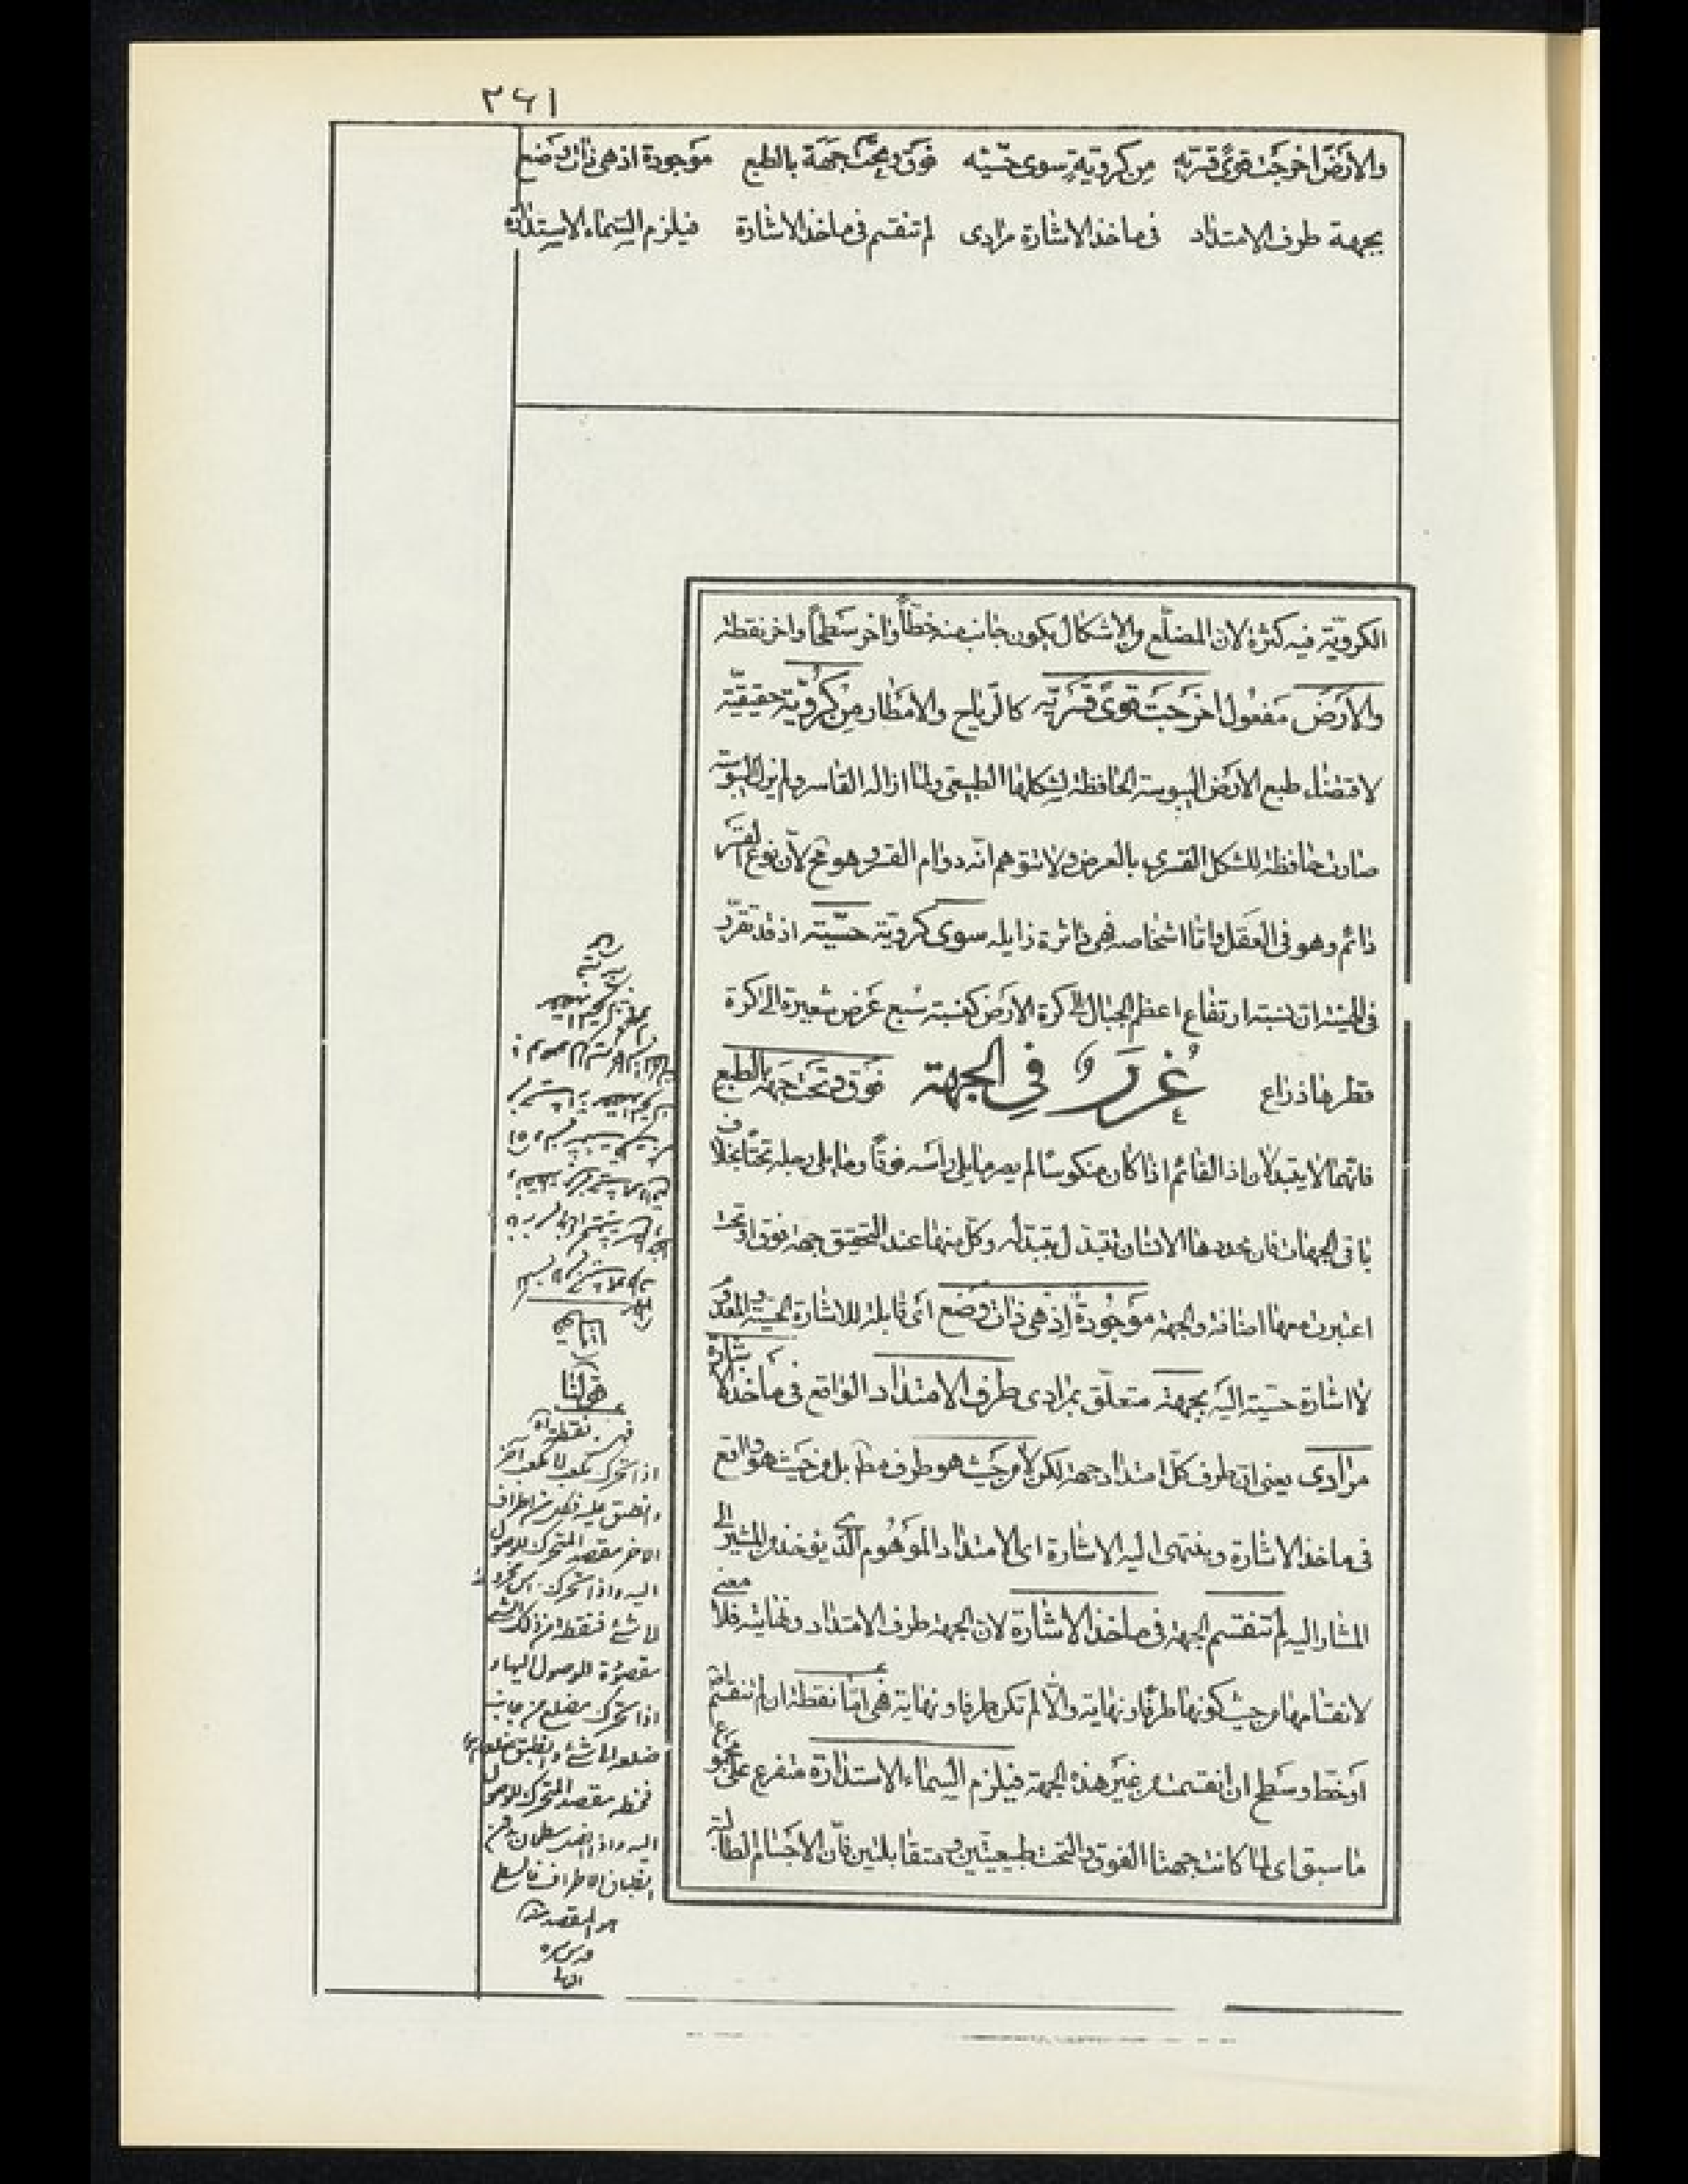 ٢٦١
والارض اخرجت قوى قسريه من كروية سوى حسيه فوق وتحت جهة بالطبع موجودة اذ هى ذات وضع
بجهة طرف الامتداد فى ماخذ الاشارة مرادى لم تنقسم فى ماخذ الاشارة فيلزم السماء الاستدارة
الكرويّة فيه كثرة لان المضلّع والاشكال يكون جانب منه خطّاً واخر سطحاً واخر نقطة
والارض مفعول اخرجت قوى قسريّه كالرياح والامطار من كرويّة حقيقيّة
لاقتضاء طبع الارض اليبوسة الحافظة لشكلها الطبيعى ولما ازاله القاسر ولم يزل اليبوسة
صارت حافظة للشكل القسرى بالعرض ولا تتوهم انّه دوام القسر وهو مح لانّ نوع القسر
دائم وهو فى العقل وامّا اشخاصه فهى داثرة زايله سوى كرويّة حسّيّة اذ قد تقرّر
فى الهيئة ان نسبة ارتفاع اعظم الجبال الى كرة الارض كنسبة سُبع عرض شعيرة الى كرة
قطرها ذراع غُرَرٌ فى الجهة فوق وتحت جهة بالطبع
فانّهما لا يتبدلان اذ القائم اذا كان منكوسًا لم يصر مايلى راسه فوقًا ومايلى رجله تحتًا بخلاف
باقى الجهات فان محدودها الانسان تتبدل بتبدله وكلّ منها عند التحقيق جهة فوق او تحت
اعتبرت معها اضافة والجهة موجودة اذ هى ذات وضع اى قابلة للاشارة الحسّيّة والمعدوم
لا اشارة حسّية اليه بجهة متعلّق بمرادى طرف الامتداد الواقع فى ماخذ الاشارة
مرادى يعنى ان طرف كلّ امتداد جهة لكن لا من حيث هو طرف مط بل من حيث هو واقع
فى ماخذ الاشارة وينتهى اليه الاشارة اى الامتداد الموهوم الّذى يؤخذ من المشير الى
المشار اليه لم تنقسم الجهة فى ماخذ الاشارة لان الجهة طرف الامتداد ونهايته فلا معنى
لانقسامها من حيث كونها طرفًا ونهاية والّا لم تكن طرفا ونهاية فهى امّا نقطة ان لم تنقسم
او خطّ وسطح ان انقسمت من غير هذه الجهة فيلزم السماء الاستدارة متفرع على مجموع
ما سبق اى لما كانت جهتا الفوق والتحت طبيعيّتين ومتقابلتين فانّ الاجسام الطالبة
قولنا
فهى نقطة اه
اذا تحرك مكعب الى مكعب اخر
الاخر مقصد المتحرك للوصول
اليه واذا تحرك
الى شئ فنقطة من ذلك الشئ
مقصودة للوصول اليها و
اذا تحرك مضلع من جانب
ضلعه الى شئ
فخطه مقصد المتحرك للوصول
هو المقصد منه